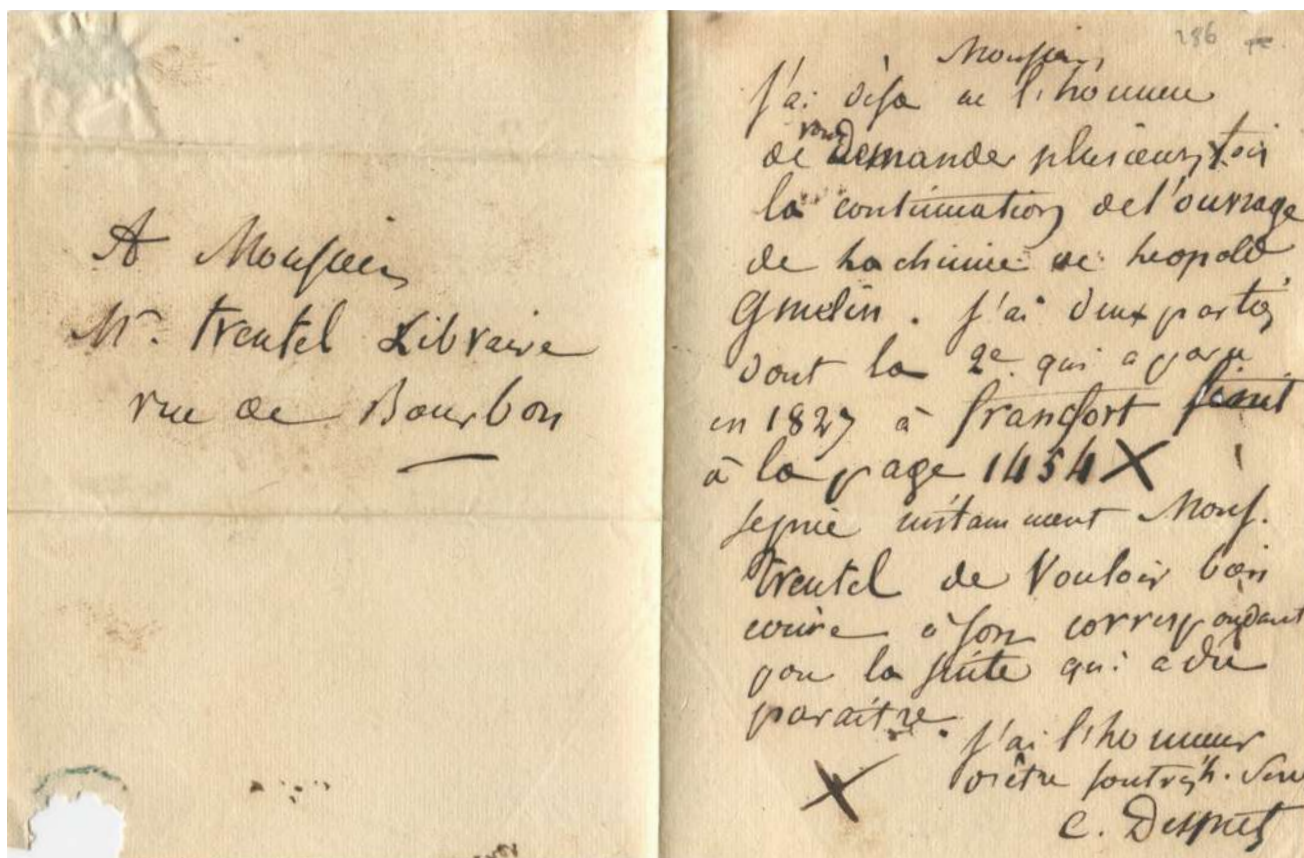 A Monsieur
Mr. Treutel Libraire
rue de Bourbon
286
Monsieur
J'ai déja eu l'honneur
de vous demander plusieurs fois
la continuation de l'ouvrage
de la chimie de Leopold
Gmelin. J'ai deux parties
dont la 2e. qui a paru
en 1827 à francfort finit
à la page 1454 X
je prie instamment Mons.
Treutel de vouloir bien
ecrire à son correspondant
pour la suite qui a du
paraitre.
J'ai l'honneur
d'être son très h. Serv
X
C. Despretz